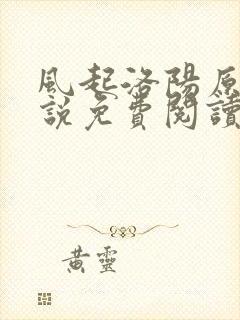 風起洛陽原
說免費閱讀
黃靈